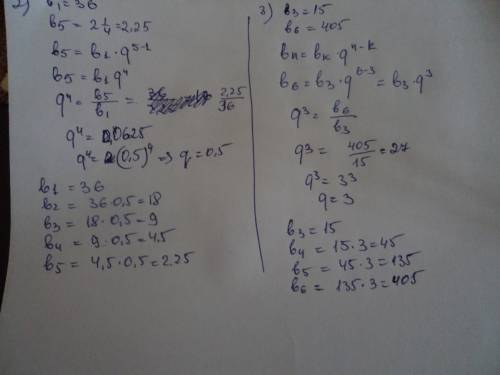 2) b₁ = 36
b₅ = 2 1/4 = 2,25
b₅ = b₁ · q⁵⁻¹
b₅ = b₁ q⁴
q⁴ = b₅/b₁ = 2,25/36
q⁴ = 0,0625
q⁴ = (0,5)⁴ => q = 0,5
b₁ = 36
b₂ = 36 · 0,5 = 18
b₃ = 18 · 0,5 = 9
b₄ = 9 · 0,5 = 4,5
b₅ = 4,5 · 0,5 = 2,25
3) b₃ = 15
b₆ = 405
bₙ = bₖ · qⁿ⁻ᵏ
b₆ = b₃ · q⁶⁻³ = b₃ · q³
q³ = b₆/b₃
q³ = 405/15 = 27
q³ = 3³
q = 3
b₃ = 15
b₄ = 15 · 3 = 45
b₅ = 45 · 3 = 135
b₆ = 135 · 3 = 405